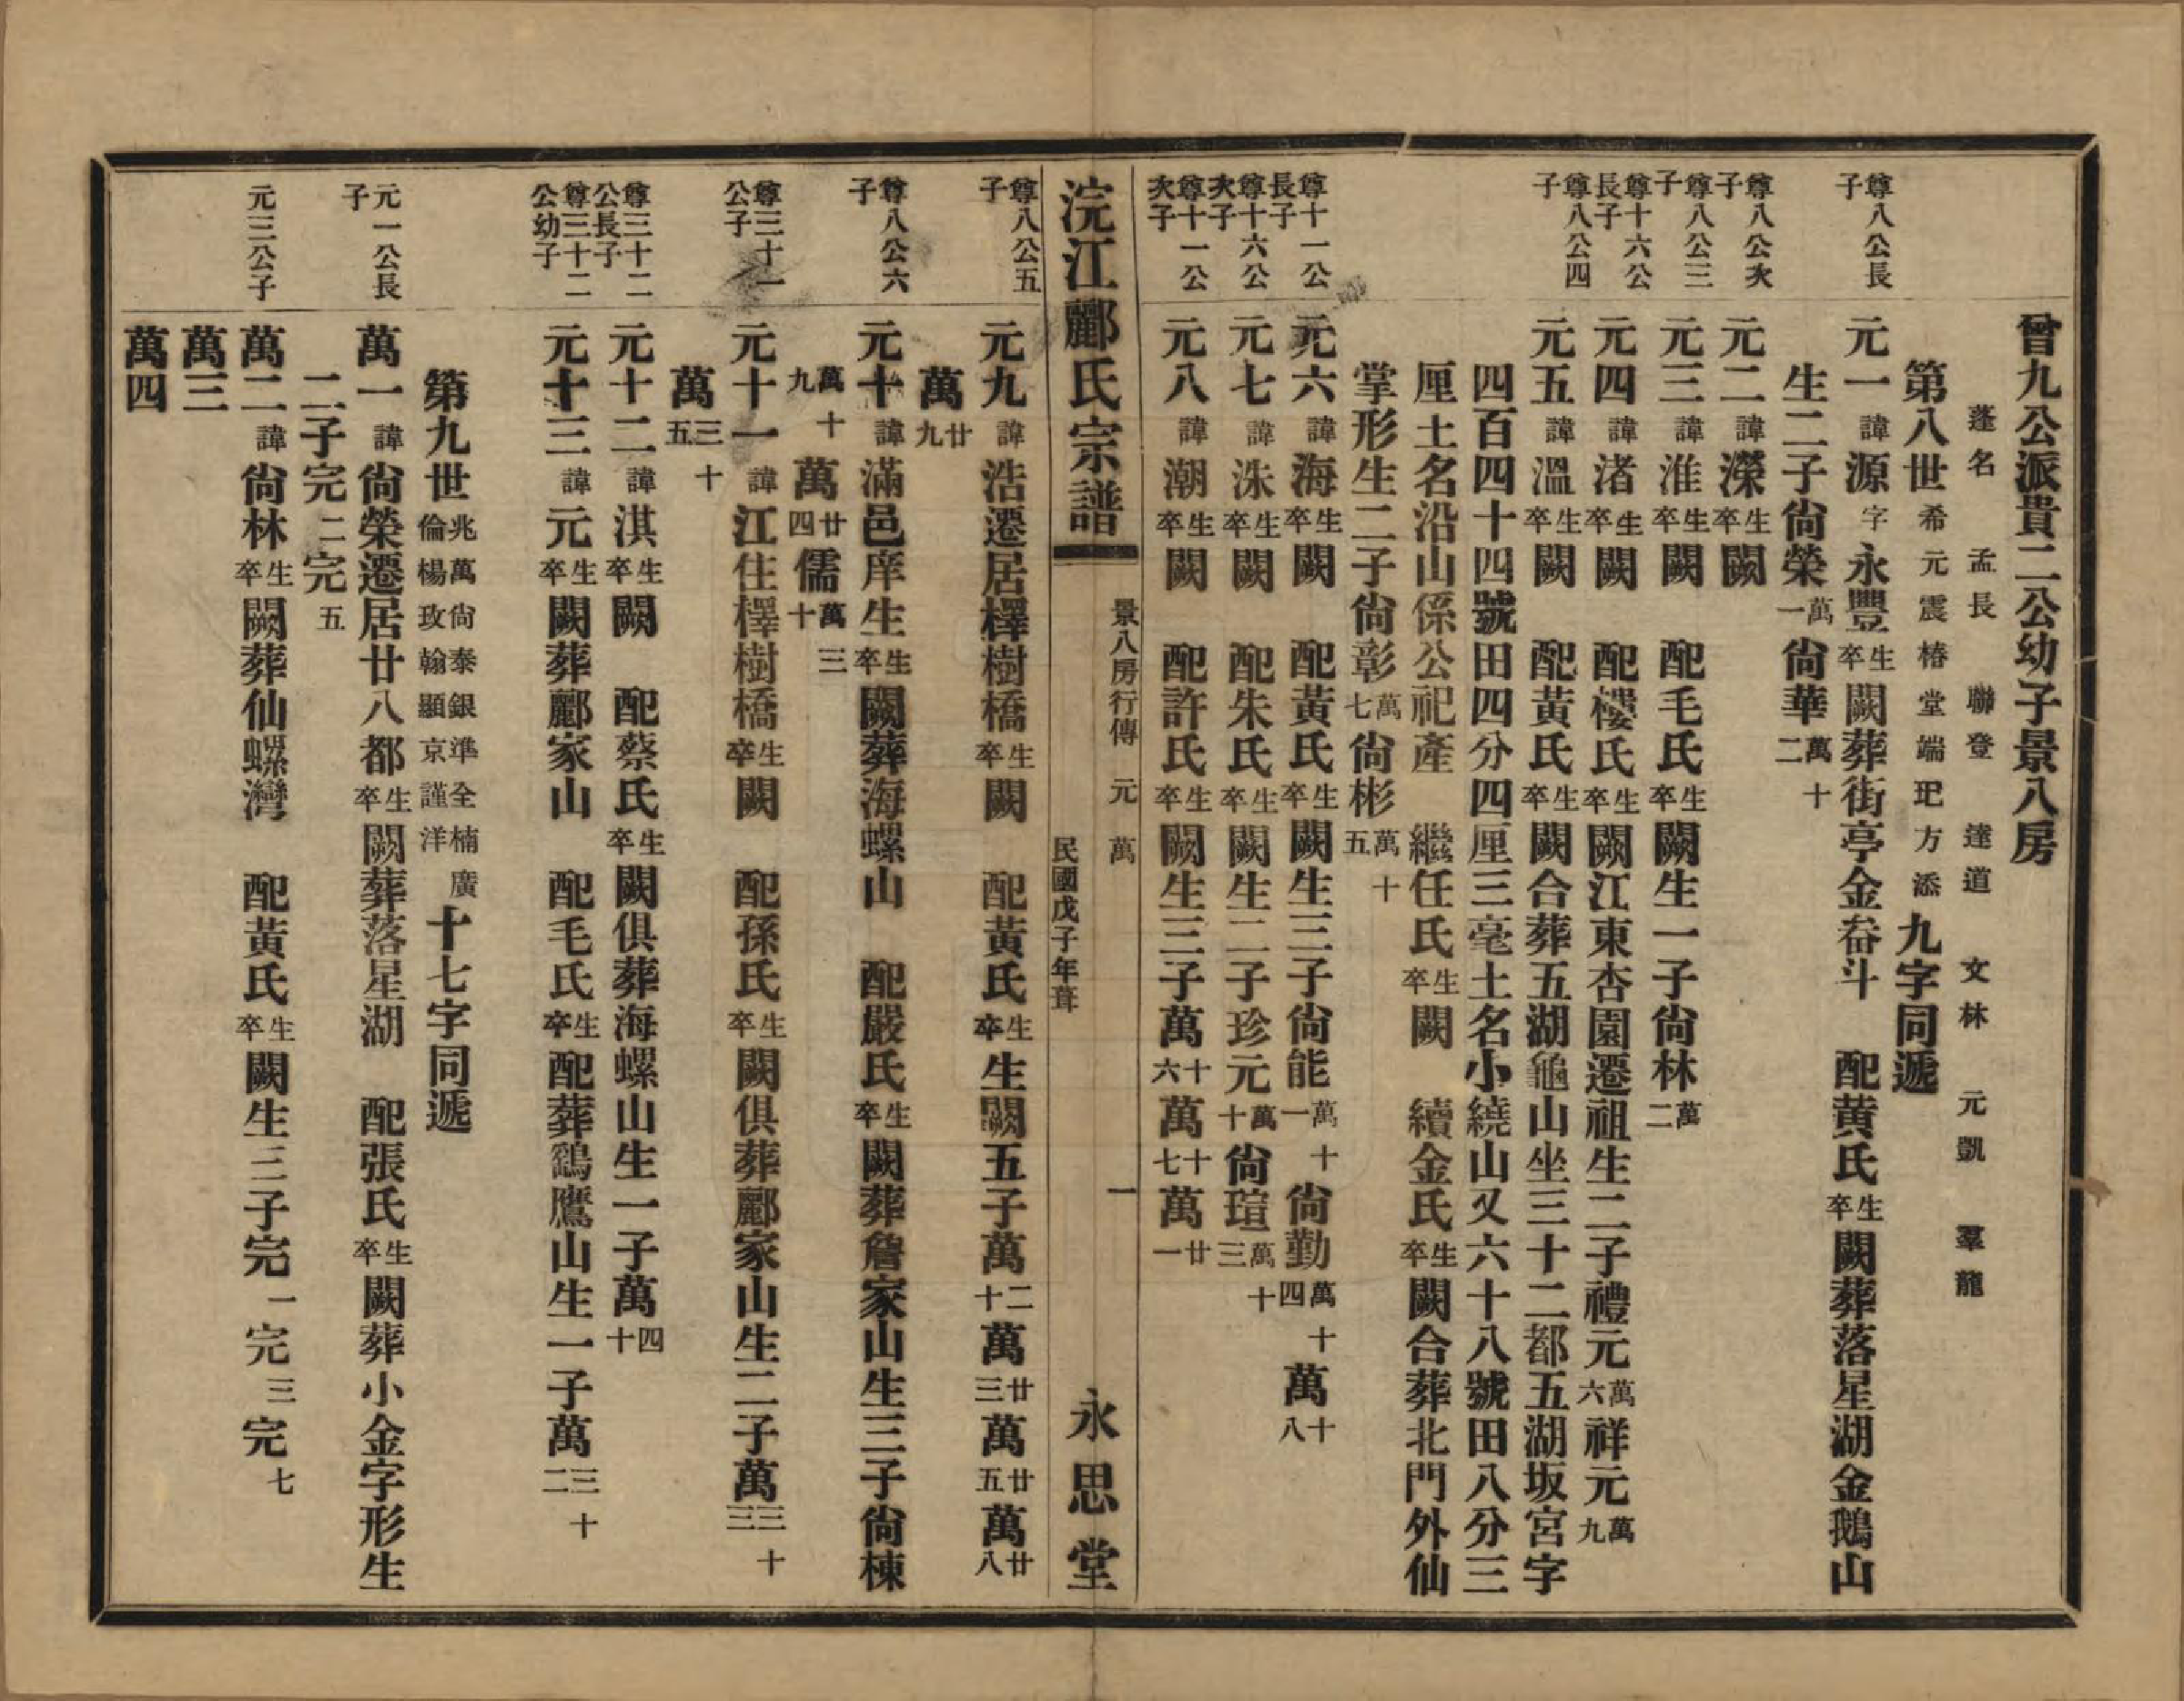 曾九公派貴二公幼子景八房
蓬名　孟長　聯登　達道　文林　元凱　羣龍
第八世希元震椿堂端玘方添九字同遞
尊八公長子
元一諱源字永豐生卒闕葬街亭金畚斗　配黃氏生卒闕葬落星湖金鵝山
生二子尙榮萬一尙華萬十二
尊八公次子
元二諱濚生卒闕
尊八公三子
元三諱淮生卒闕　配毛氏生卒闕生一子尙林萬二
尊十六公長子
元四諱渚生卒闕　配樓氏生卒闕江東杏園遷祖生二子禮元萬六祥元萬九
尊八公四子
元五諱溫生卒闕　配黃氏生卒闕合葬五湖龜山坐三十二都五湖坂宮字
四百四十四號田四分四厘三毫土名小繞山又六十八號田八分三
厘土名沿山係公祀產　繼任氏生卒闕　續金氏生卒闕合葬北門外仙
掌形生二子尙彰萬七尙彬萬十五
尊十一公長子
元六諱海生卒闕　配黃氏生卒闕生三子尙能萬十一尙勤萬十四萬十八
尊十六公次子
元七諱洙生卒闕　配朱氏生卒闕生二子珍元萬十尙瑄萬十三
尊十一公次子
元八諱潮生卒闕　配許氏生卒闕生三子萬十六萬十七萬廿一
浣江酈氏宗譜　景八房行傳　元　萬　一　民國戊子年葺　永思堂
尊八公五子
元九諱浩遷居檡樹橋生卒闕　配黃氏生卒生闕五子萬二十萬廿三萬廿五萬廿八
萬廿九
尊八公六子
元十諱滿邑庠生生卒闕葬海螺山　配嚴氏生卒闕葬詹家山生三子尙棟
萬十九萬廿四儒萬三十
尊三十一公子
元十一諱江住檡樹橋生卒闕　配孫氏生卒闕俱葬酈家山生二子萬三十三
萬三十五
尊三十二公長子
元十二諱淇生卒闕　配蔡氏生卒闕俱葬海螺山生一子萬四十
尊三十二公幼子
元十三諱元生卒闕葬酈家山　配毛氏生卒配葬鷂鷹山生一子萬三十二
第九世兆萬尙泰銀準全楠廣倫楊玫翰顯京謹洋十七字同遞
元一公長子
萬一諱尙榮遷居廿八都生卒闕葬落星湖　配張氏生卒闕葬小金字形生
二子完二完五
元三公子
萬二諱尙林生卒闕葬仙螺灣　配黃氏生卒闕生三子完一完三完七
萬三
萬四